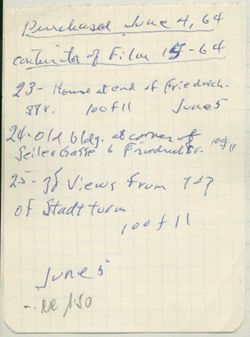 Purchased June 4, 64
of Film 15-64
23- House at end of Friedrich-
str. 100 f 11 June 5
24- Old bldg. at corner of
Seiler Gasse & Friedrichstr. 100 f 11
25- Views from top
of Stadtturm
100 f 11
June 5